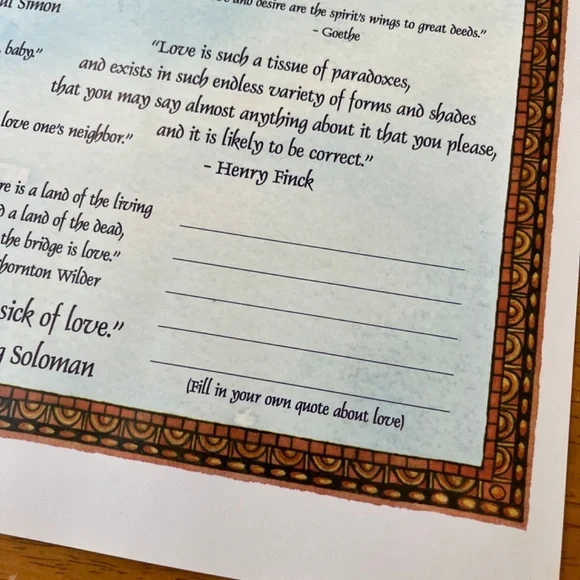 ul Simon
and desire are the spirit's wings to great deeds."
- Goethe
baby."
"Love is such a tissue of paradoxes,
and exists in such endless variety of forms and shades
that you may say almost anything about it that you please,
and it is likely to be correct."
- Henry Finck
love one's neighbor."
re is a land of the living
d a land of the dead,
the bridge is love."
hornton Wilder
sick of love."
g Soloman
(Fill in your own quote about love)